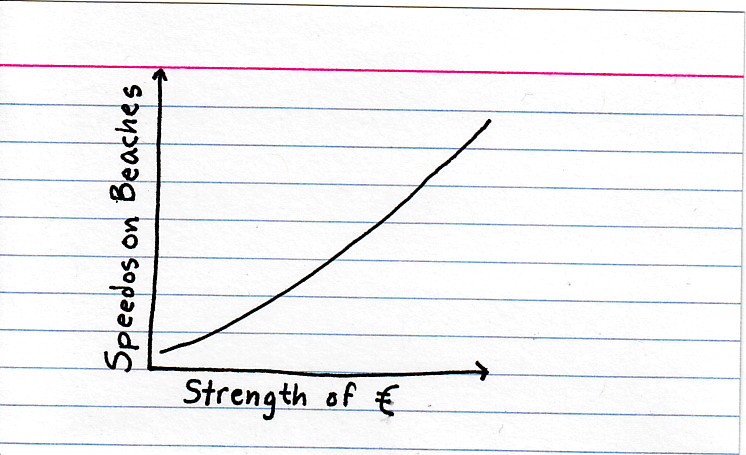 Speedos on Beaches
Strength of €